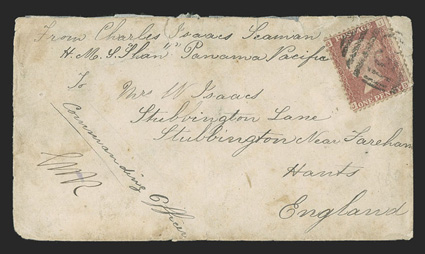 From Charles Isaacs Seaman
H. M. S. "Shan" Panama Pacific
To
Mrs W Isaacs
Stubbington Lane
Stubbington Near Fareham
Hants
England
Commanding Officer
ONE PENNY